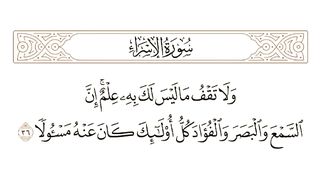 سُورَةُ الإِسْرَاءِ
وَلَا تَقْفُ مَا لَيْسَ لَكَ بِهِۦ عِلْمٌ ۚ إِنَّ
ٱلسَّمْعَ وَٱلْبَصَرَ وَٱلْفُؤَادَ كُلُّ أُو۟لَـٰٓئِكَ كَانَ عَنْهُ مَسْـُٔولًا ٣٦